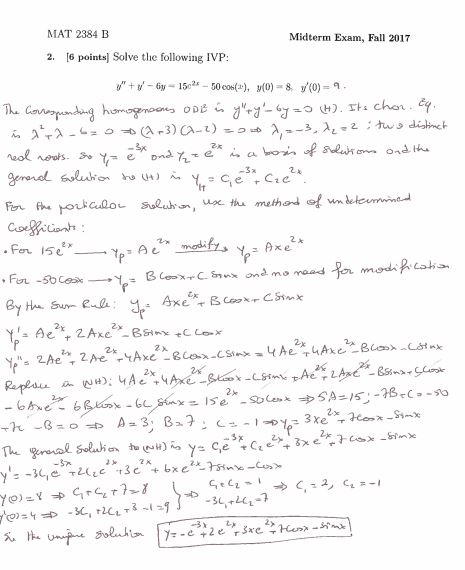 MAT 2384 B Midterm Exam, Fall 2017
2. [6 points] Solve the following IVP:
y″ + y′ − 6y = 15e^{2x} − 50 cos(x), y(0) = 8, y′(0) = 9.
The corresponding homogeneous ODE is y″+y′−6y=0 (H). Its char. Eq.
is λ²+λ−6=0 ⇒ (λ+3)(λ−2)=0 ⇒ λ₁=−3, λ₂=2 ; two distinct
real roots. So y₁= e^{−3x} and y₂= e^{2x} is a basis of solutions and the
general solution to (H) is y_H = C₁e^{−3x} + C₂e^{2x}.
For the particular solution, use the method of undetermined
Coefficients:
• For 15e^{2x} ⟶ y_p = Ae^{2x} modify→ y_p = Axe^{2x}
• For −50cosx ⟶ y_p = Bcosx + C sinx and no need for modification
By the Sum Rule: y_p = Axe^{2x} + Bcosx + C sinx
y_p′ = Ae^{2x} + 2Axe^{2x} − Bsinx + C cosx
y_p″ = 2Ae^{2x} + 2Ae^{2x} + 4Axe^{2x} − Bcosx − Csinx = 4Ae^{2x} + 4Axe^{2x} − Bcosx − Csinx
Replace in (NH): 4Ae^{2x} + 4Axe^{2x} − Bcosx − Csinx + Ae^{2x} + 2Axe^{2x} − Bsinx + Ccosx
− 6Axe^{2x} − 6Bcosx − 6C sinx = 15e^{2x} − 50cosx ⇒ 5A=15; −7B+C=−50
−7C − B = 0 ⇒ A=3; B=7; C=−1 ⇒ y_p = 3xe^{2x} + 7cosx − sinx
The general solution to (NH) is y = C₁e^{−3x} + C₂e^{2x} + 3xe^{2x} + 7cosx − sinx
y′ = −3C₁e^{−3x} + 2C₂e^{2x} + 3e^{2x} + 6xe^{2x} − 7sinx − cosx
y(0)=8 ⇒ C₁+C₂+7=8 } ⇒ C₁+C₂=1 ⇒ C₁=2, C₂=−1
y′(0)=4 ⇒ −3C₁+2C₂+3−1=9 −3C₁+2C₂=7
So the unique solution y=−e^{−3x}+2e^{2x}+3xe^{2x}+7cosx−sinx